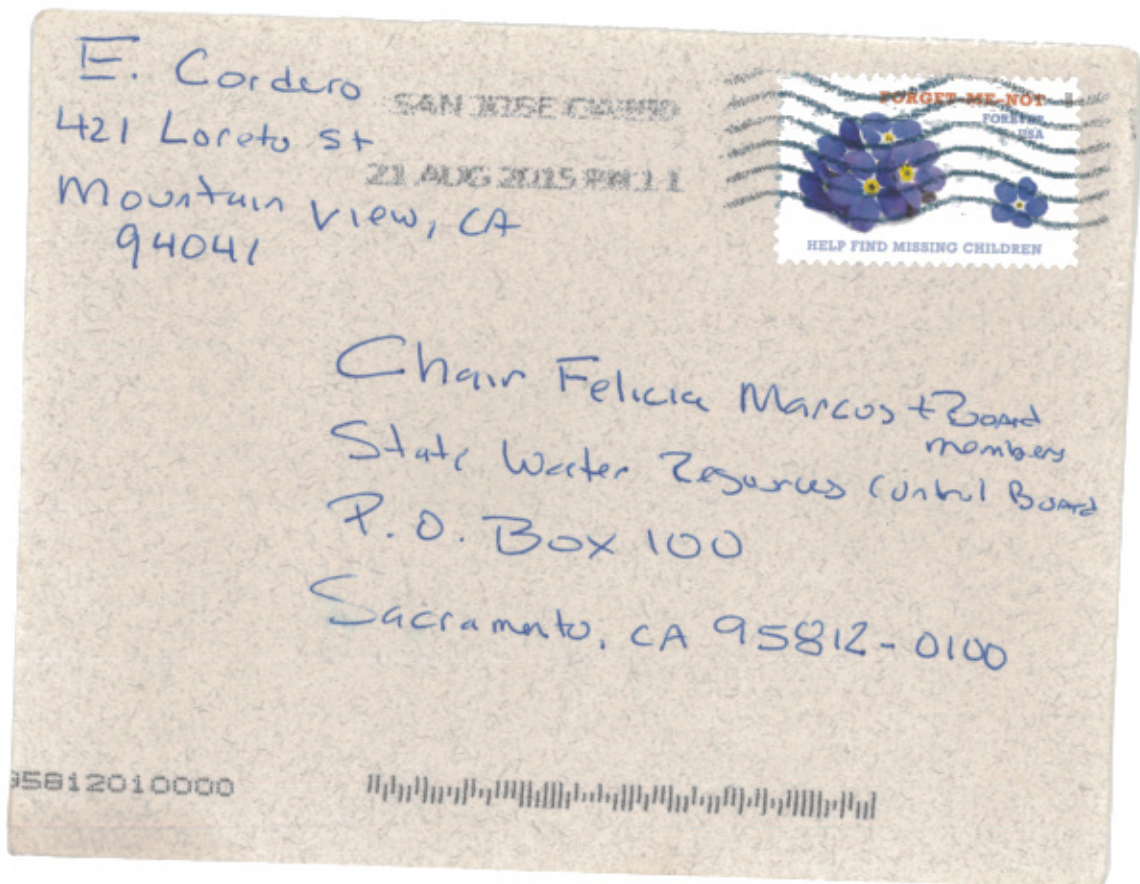 E. Cordero
421 Loreto St
Mountain View, CA
94041
SAN JOSE CA
21 AUG 2015 PM 11
FORGET-ME-NOT
FOREVER
USA
HELP FIND MISSING CHILDREN
Chair Felicia Marcus + Board
members
State Water Resources Control Board
P.O. Box 100
Sacramento, CA 95812-0100
95812010000